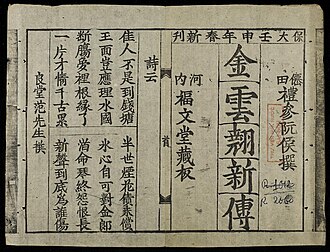 保大壬申年春新刊
僊田禮參阮侯撰
金雲翹新傳
河內
福文堂藏板
詩云
佳人不是到錢塘 半世煙花債未償
玉面豈應埋水國 冰心自可對金郎
斷腸夢裡根緣了 薄命琴終怨恨長
一片才情千古累 新聲到底為誰傷
良堂范先生撰